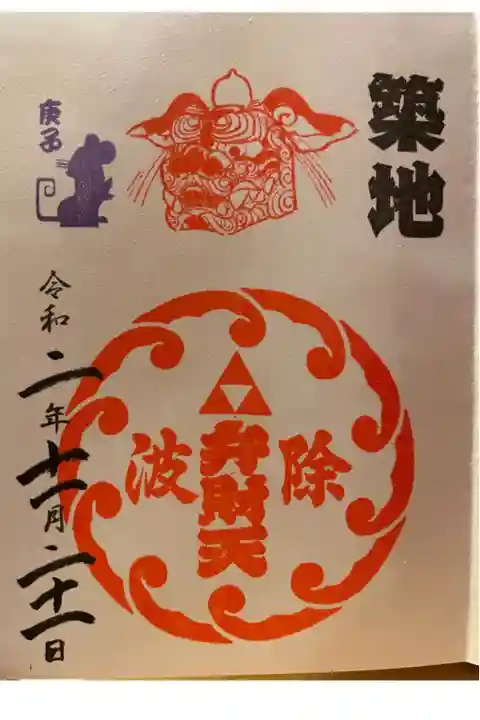 築地
除
弁財天
波
庚子
令和二年十一月二十一日